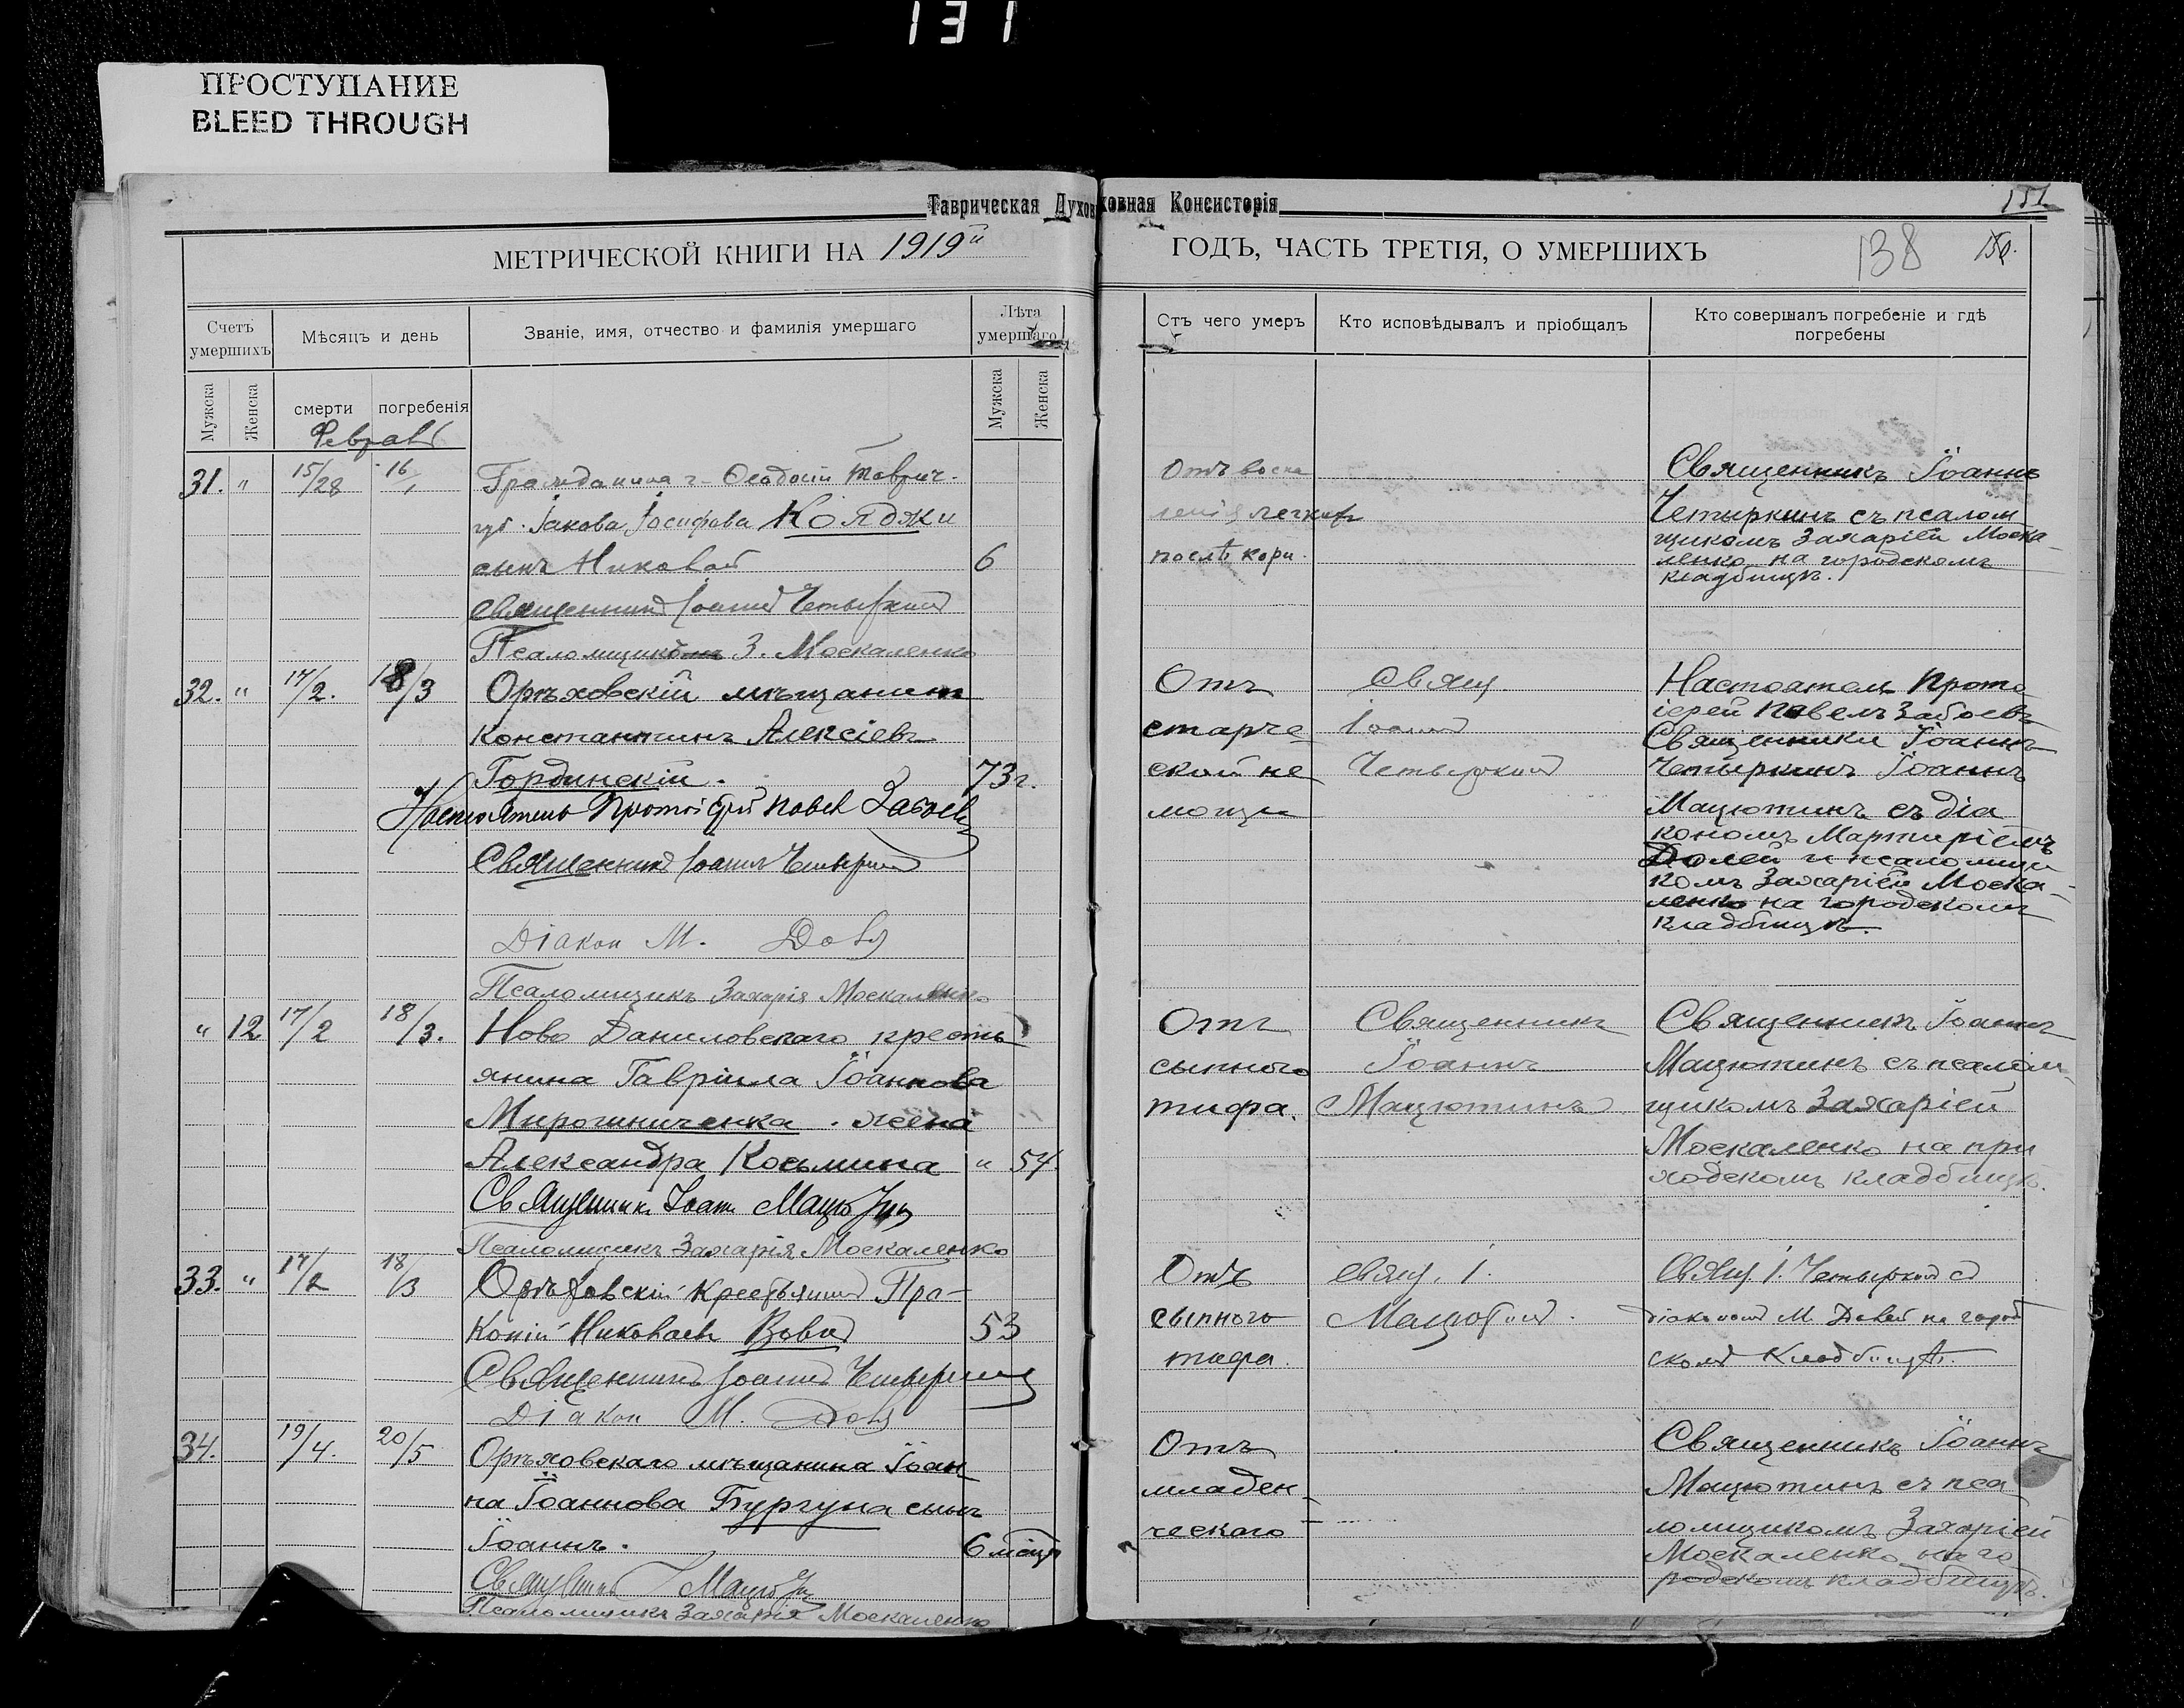 131
ПРОСТУПАНИЕ
BLEED THROUGH
Таврическая Духовная Консисторія
151
МЕТРИЧЕСКОЙ КНИГИ НА 1919й ГОДЪ, ЧАСТЬ ТРЕТІЯ, О УМЕРШИХЪ
138
Счетъ умершихъ
Мѣсяцъ и день
Званіе, имя, отчество и фамилія умершаго
Лѣта умершаго
Отъ чего умеръ
Кто исповѣдывалъ и пріобщалъ
Кто совершалъ погребеніе и гдѣ погребены
Мужска
Женска
смерти
погребенія
Мужска
Женска
31. " 15/28 16/1
Гражданина г. Ѳеодосіи Таврич.
губ. Іакова Іосифова Кояджи
сынъ Николай 6
Священникъ Іоаннъ Четыркинъ
Псаломщикъ З. Москаленко
Отъ воспа
ленія легкихъ
послѣ кори.
Священникъ Іоаннъ
Четыркинъ съ псалом
щикомъ Захаріей Моска
ленко на городскомъ
кладбищѣ.
32. " 17/2. 18/3
Орѣховскій мѣщанинъ
Константинъ Алексіевъ
Гординскій. 73 г.
Настоятель Протоіерей Павелъ Забоевъ
Священникъ Іоаннъ Четыркинъ
Діакон М. Доля
Псаломщикъ Захарія Москаленко
Отъ
старче
ской не
мощи
Свящ.
Іоаннъ
Четыркинъ
Настоятель Прото
іерей Павелъ Забоевъ
Священники Іоаннъ
Четыркинъ Іоаннъ
Мацютинъ съ діа
кономъ Мартиріемъ
Долей и псаломщи
комъ Захаріей Моска
ленко на городскомъ
кладбищѣ.
" 12 17/2 18/3.
Ново Даниловскаго кресть
янина Гавріила Іоаннова
Мирошниченка. жена
Александра Косьмина " 54.
Священникъ Іоаннъ Мацютинъ
Псаломщикъ Захарія Москаленко
Отъ
сыпного
тифа.
Священникъ
Іоаннъ
Мацютинъ
Священникъ Іоаннъ
Мацютинъ съ псалом
щикомъ Захаріей
Москаленко на при
ходскомъ кладбищѣ.
33. " 17/2 18/3
Орѣховскій крестьянинъ Про-
копій Николаевъ Вовкъ 53
Священникъ Іоаннъ Четыркинъ
Діакон М. Доля
Отъ
сыпного
тифа.
Свящ. І.
Мацютинъ.
Свящ. І. Четыркинъ съ
діакономъ М. Долей на город
скомъ кладбищѣ.
34. 19/4. 20/5
Орѣховскаго мѣщанина Іоан
на Іоаннова Бургуна сынъ
Іоаннъ. 6 мѣсяц
Священникъ І Мацютинъ
Псаломщикъ Захарія Москаленко
Отъ
младен-
ческаго
Священникъ Іоаннъ
Мацютинъ съ пса
ломщикомъ Захаріей
Москаленко на го
родскомъ кладбищѣ.